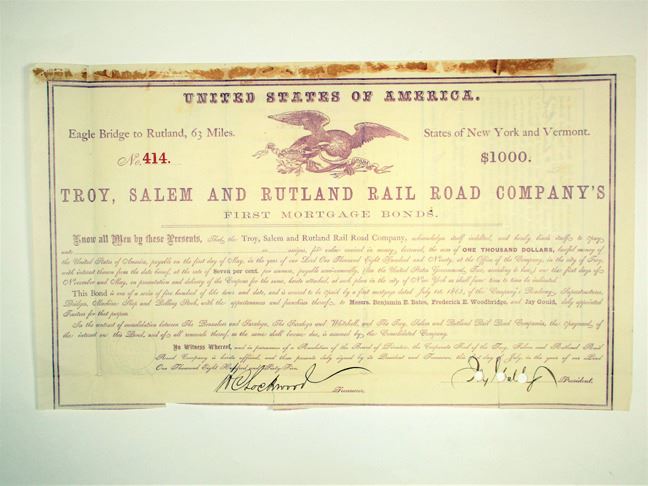 UNITED STATES OF AMERICA.
Eagle Bridge to Rutland, 63 Miles.
States of New York and Vermont.
No. 414.
$1000.
TROY, SALEM AND RUTLAND RAIL ROAD COMPANY'S
FIRST MORTGAGE BONDS.
Know all Men by these Presents, That the Troy, Salem and Rutland Rail Road Company, acknowledges itself indebted, and hereby binds itself to pay
unto or assigns, for value received in money, borrowed, the sum of ONE THOUSAND DOLLARS, lawful money of
the United States of America, payable on the first day of May, in the year of our Lord One Thousand Eight Hundred and Ninety, at the Office of the Company, in the city of Troy,
with interest thereon from the date hereof, at the rate of Seven per cent. per annum, payable semi-annually, (less the United States Government Tax, on the first days of
November and May, on presentation and delivery of the Coupons for the same, hereto attached, at such place in the city of New York as shall from time to time be indicated.
This Bond is one of a series of five hundred of like tenor and date, and is secured to be paid by a first mortgage, dated July 1st, 1865, of the Company's Roadway, Superstructure,
Bridges, Machine Shops and Rolling Stock, with the appurtenances and franchises thereof, to Messrs. Benjamin E. Bates, Frederick E. Woodbridge, and Jay Gould, duly appointed
Trustees for that purpose.
In the contract of consolidation between The Rensselaer and Saratoga, The Saratoga and Whitehall, and The Troy, Salem and Rutland Rail Road Companies, the payment of
the interest on this Bond, and of all renewals thereof, as the same shall become due, is assumed by the Consolidated Company.
In Witness Whereof, and in pursuance of a Resolution of the Board of Directors, the Corporate Seal of the Troy, Salem and Rutland Rail
Road Company is hereto affixed, and these presents duly signed by its President and Treasurer, the first day of July, in the year of our Lord
One Thousand Eight Hundred and Sixty Five.
Lockwood Treasurer.
Jay Gould President.